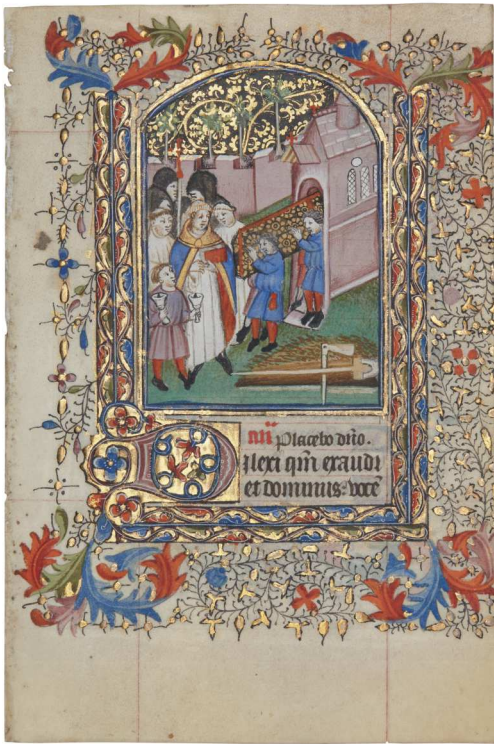 añ Placebo dño.
Dilexi qm̃ exaudi
et dominus: vocẽ